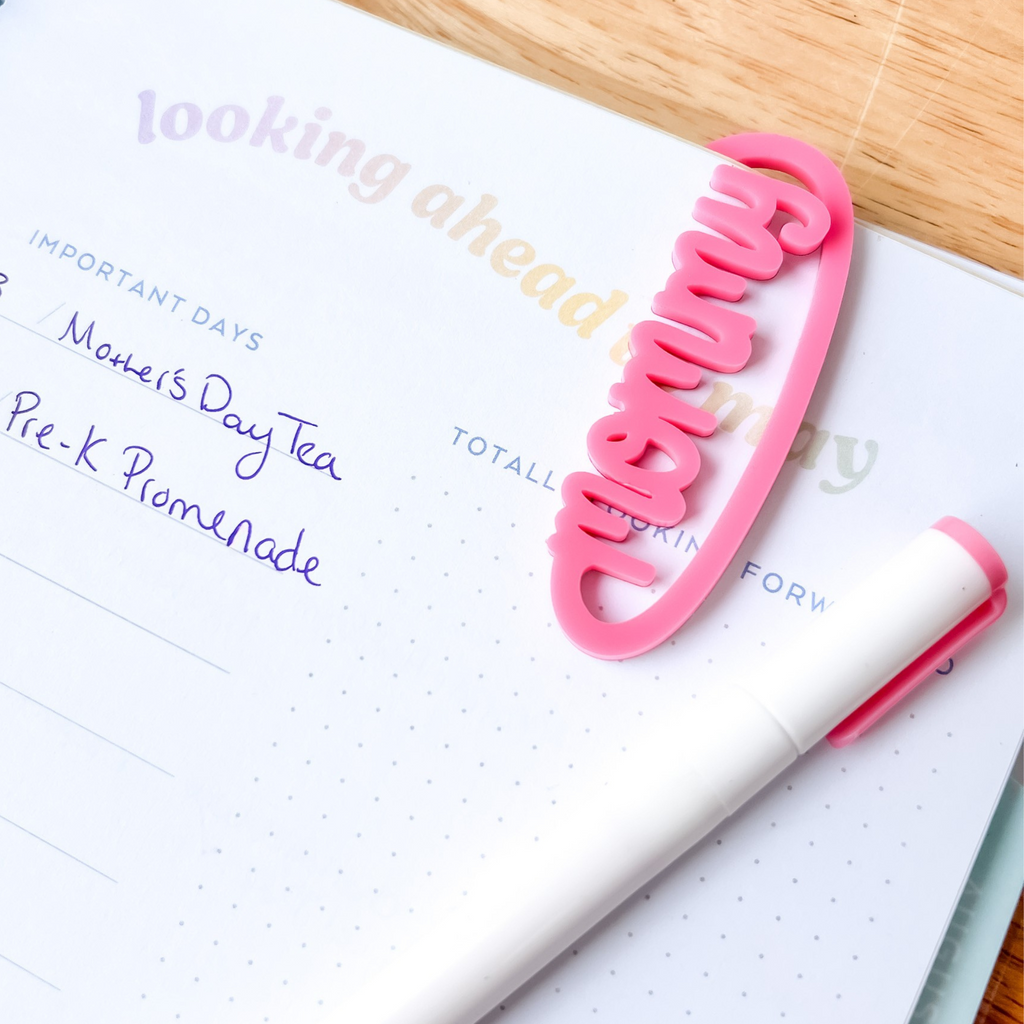 looking ahead may
IMPORTANT DAYS
Mother's Day Tea
Pre-K Promenade
TOTALL OOKIN FORW